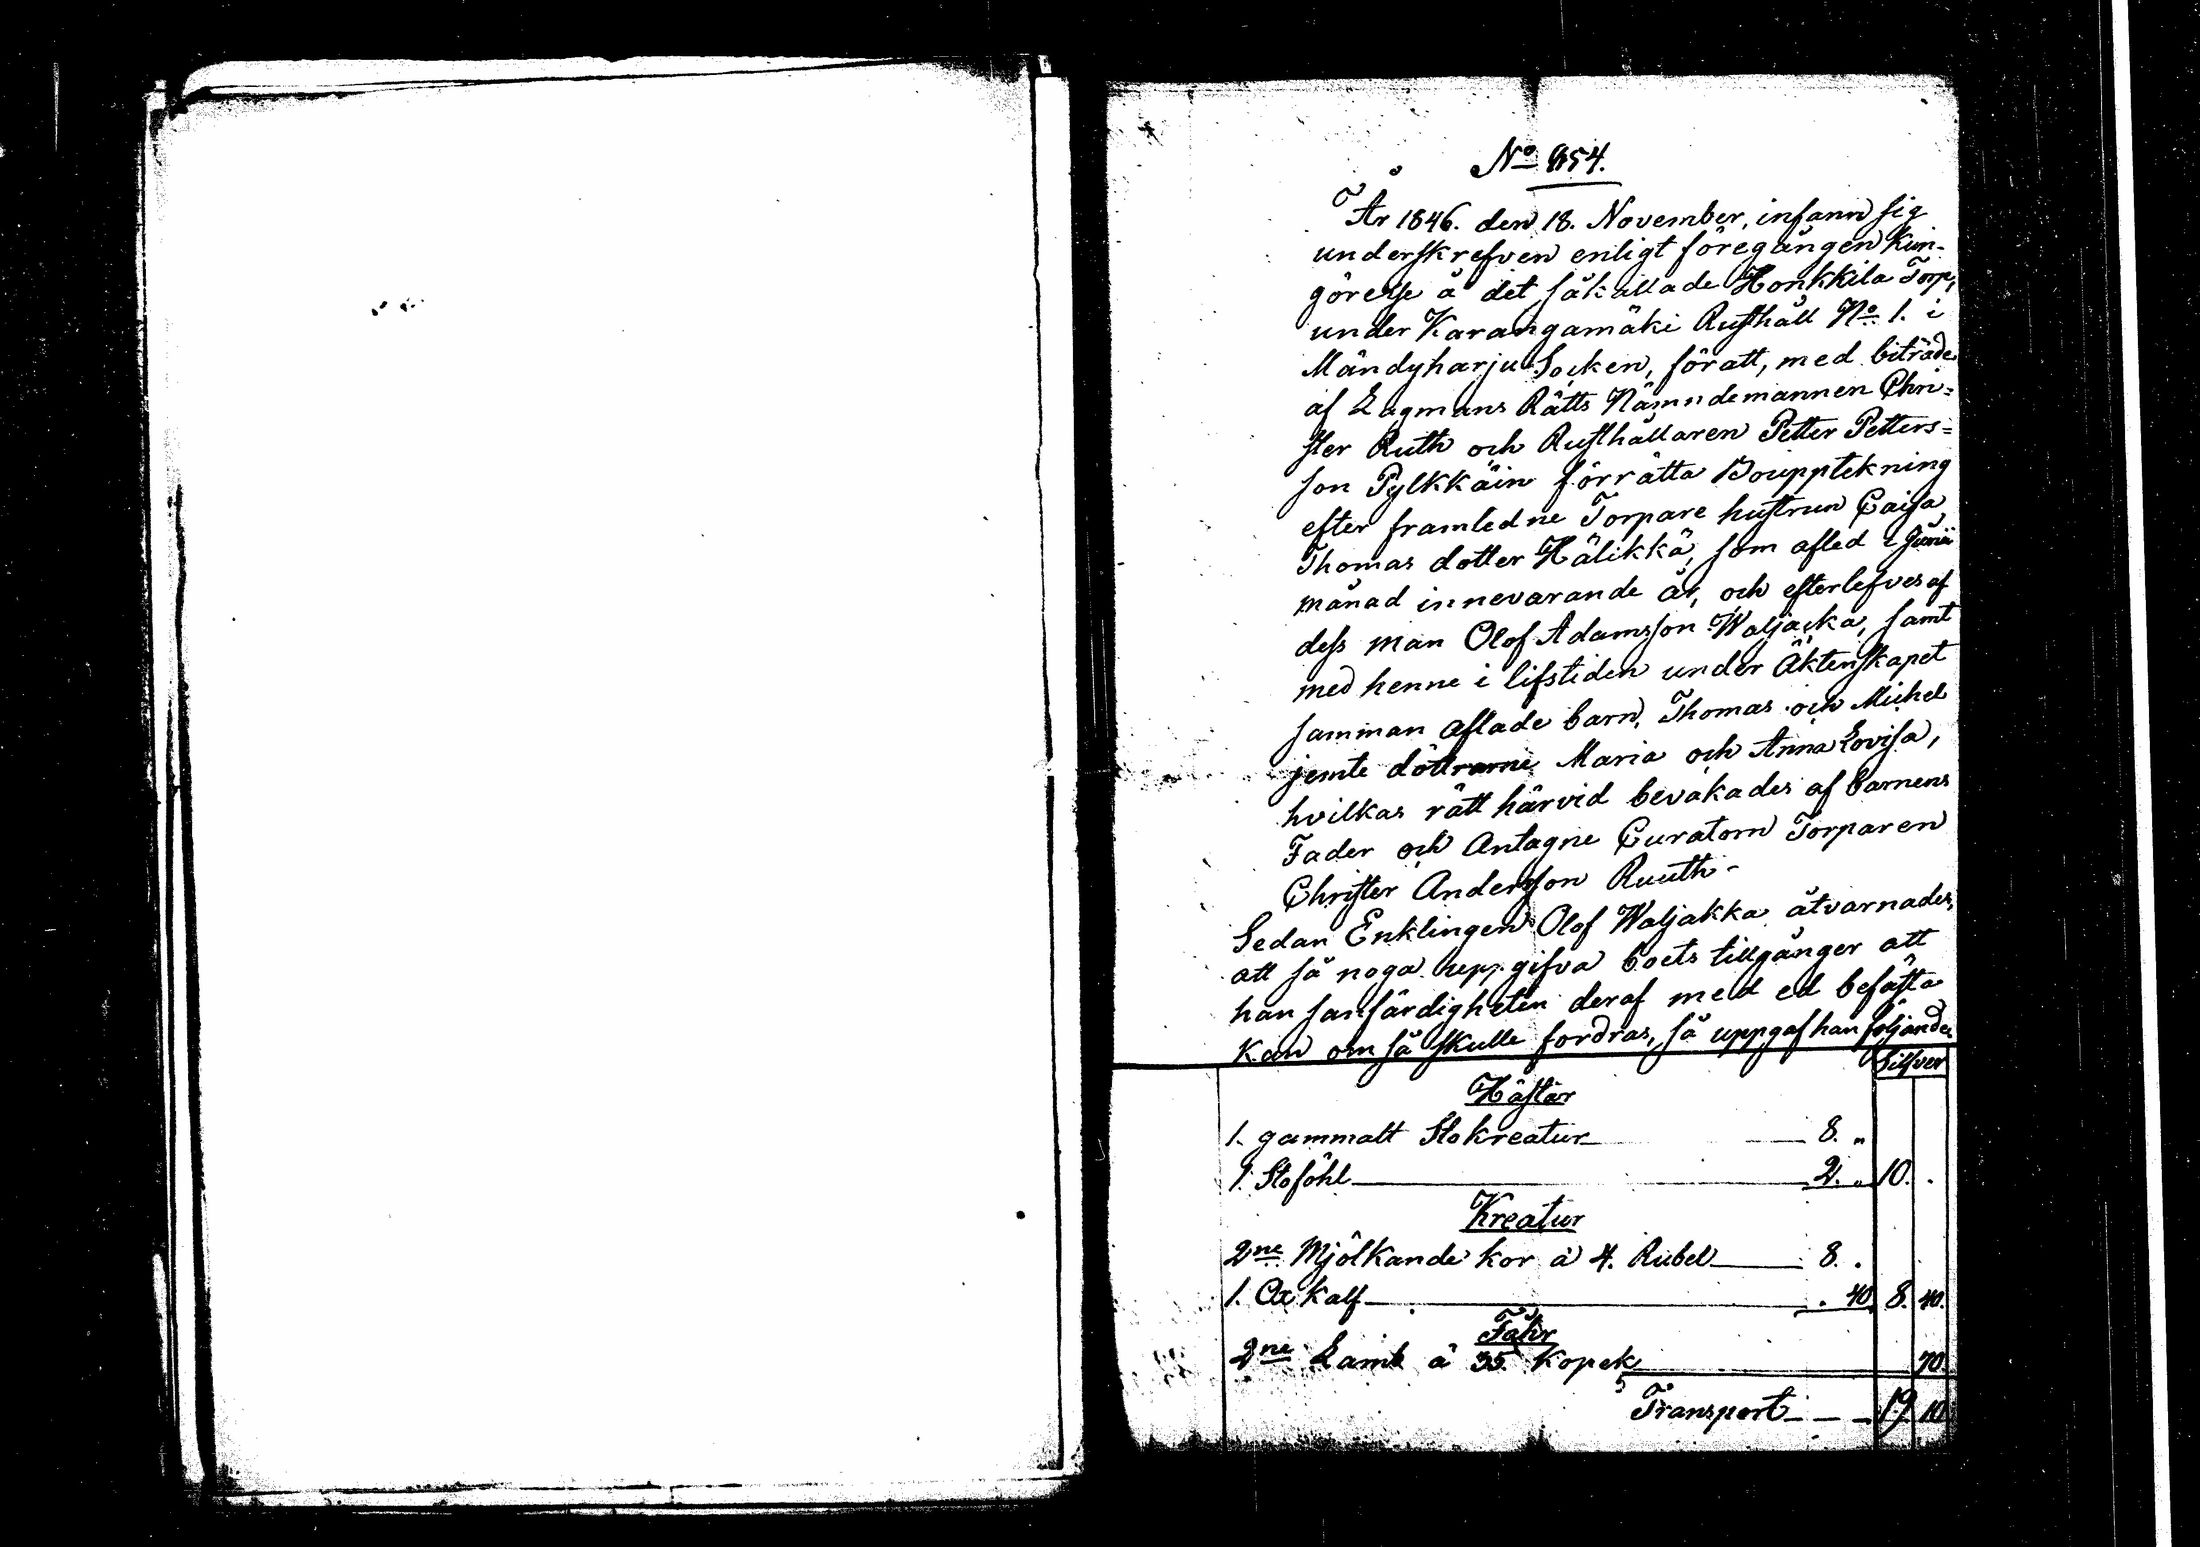 No 854.
År 1846. den 18. November, infann sig
underskrefven enligt föregången kun-
görelse å det såkallade Honkkila Torp,
under Karangamäki Rusthåll No 1. i
Mändyharju Socken, för att, med biträde
af Lagmans Rätts Nämndemannen Chri=
ster Ruth och Rusthållaren Petter Petters=
son Pylkkäin förrätta Bouppteckning
efter framledne Torpare hustrun Caisa
Thomas dotter Hälikkä, som afled i Junii
månad innevarande år, och efterlefves af
dess man Olof Adamsson Waljacka, samt
med henne i lifstiden under Äktenskapet
samman aflade barn, Thomas och Michel
jemte döttrarne Maria och Anna Lovisa,
hvilkas rätt härvid bevakades af barnens
Fader och Antagne Curatorn Torparen
Christer Andersson Ruuth-
Sedan Enklingen Olof Waljakka åtvarnades,
att så noga uppgifva boets tillgånger att
han sanfärdigheten deraf med ed befästa
kan om så skulle fordras, så uppgaf han följande
Silfver
Hästar
1. gammalt Stokreatur 8. "
1. Stoföhl 2. " 10. .
Kreatur
2ne Mjölkande kor à 4. Rubel 8. .
1. Ox kalf . 40 8. 40.
Fåhr
2ne Lamb à 35 Kopek 70.
Transport - - - 19 10